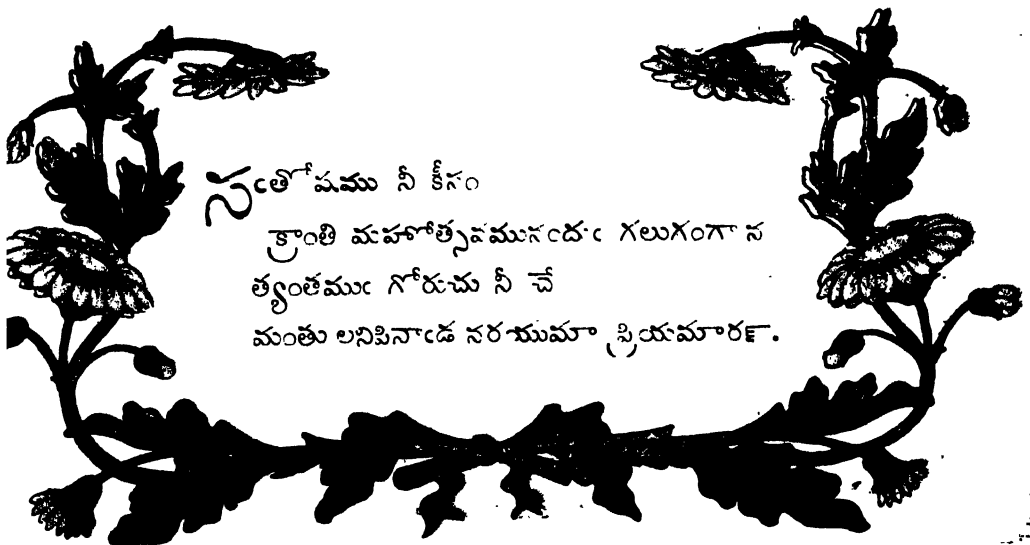 సఁతోషము నీ కీసం
క్రాంతి మహోత్సవమునందుఁ గలుగంగా న
త్యంతముఁ గోరుచు నీ చే
మంతు లనిపినాఁడ నరయుమా ప్రియమారఁగ.